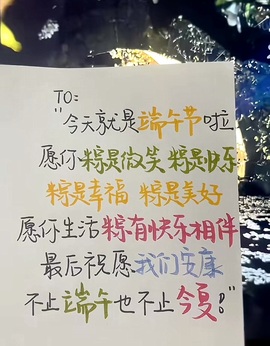 TO:
“今天就是端午节啦
愿你粽是微笑 粽是快乐
粽是幸福 粽是美好
愿你生活粽有快乐相伴
最后祝愿我们安康
不止端午也不止今夏！”